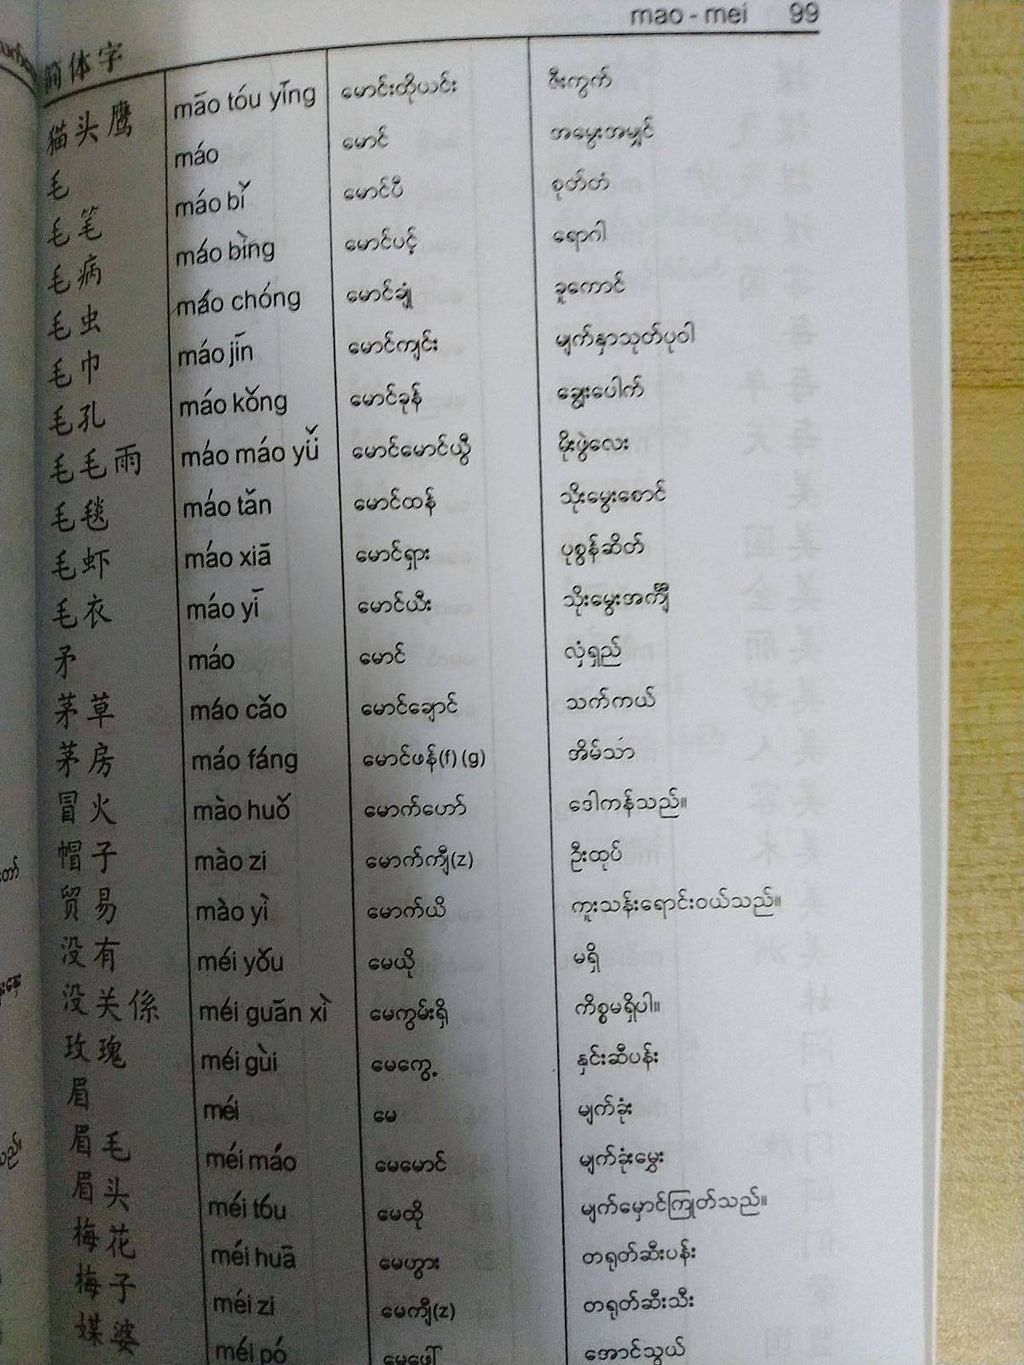 mao - mei 99
简体字
猫头鹰 māo tóu yīng မောင်းထိုယင်း ဇီးကွက်
毛 máo မောင် အမွေးအမျှင်
毛笔 máo bǐ မောင်ပီ စုတ်တံ
毛病 máo bìng မောင်ပင့် ရောဂါ
毛虫 máo chóng မောင်ချုံ ခူကောင်
毛巾 máo jīn မောင်ကျင်း မျက်နှာသုတ်ပုဝါ
毛孔 máo kǒng မောင်ခုန် ချွေးပေါက်
毛毛雨 máo máo yǚ မောင်မောင်ယွီ မိုးဖွဲလေး
毛毯 máo tǎn မောင်ထန် သိုးမွေးစောင်
毛虾 máo xiā မောင်ရှား ပုစွန်ဆိတ်
毛衣 máo yī မောင်ယီး သိုးမွေးအင်္ကျီ
矛 máo မောင် လှံရှည်
茅草 máo cǎo မောင်ချောင် သက်ကယ်
茅房 máo fáng မောင်ဖန်(f) (g) အိမ်သာ
冒火 mào huǒ မောက်ဟော် ဒေါကန်သည်။
帽子 mào zi မောက်ကျီ(z) ဦးထုပ်
贸易 mào yì မောက်ယိ ကူးသန်းရောင်းဝယ်သည်။
没有 méi yǒu မေယို မရှိ
没关係 méi guān xì မေကွမ်းရှိ ကိစ္စမရှိပါ။
玫瑰 méi gùi မေကွေ့ နှင်းဆီပန်း
眉 méi မေ မျက်ခုံး
眉毛 méi máo မေမောင် မျက်ခုံးမွှေး
眉头 méi tóu မေထို မျက်မှောင်ကြုတ်သည်။
梅花 méi huā မေဟွား တရုတ်ဆီးပန်း
梅子 méi zi မေကျီ(z) တရုတ်ဆီးသီး
媒婆 méi pó မေဖေါ် အောင်သွယ်